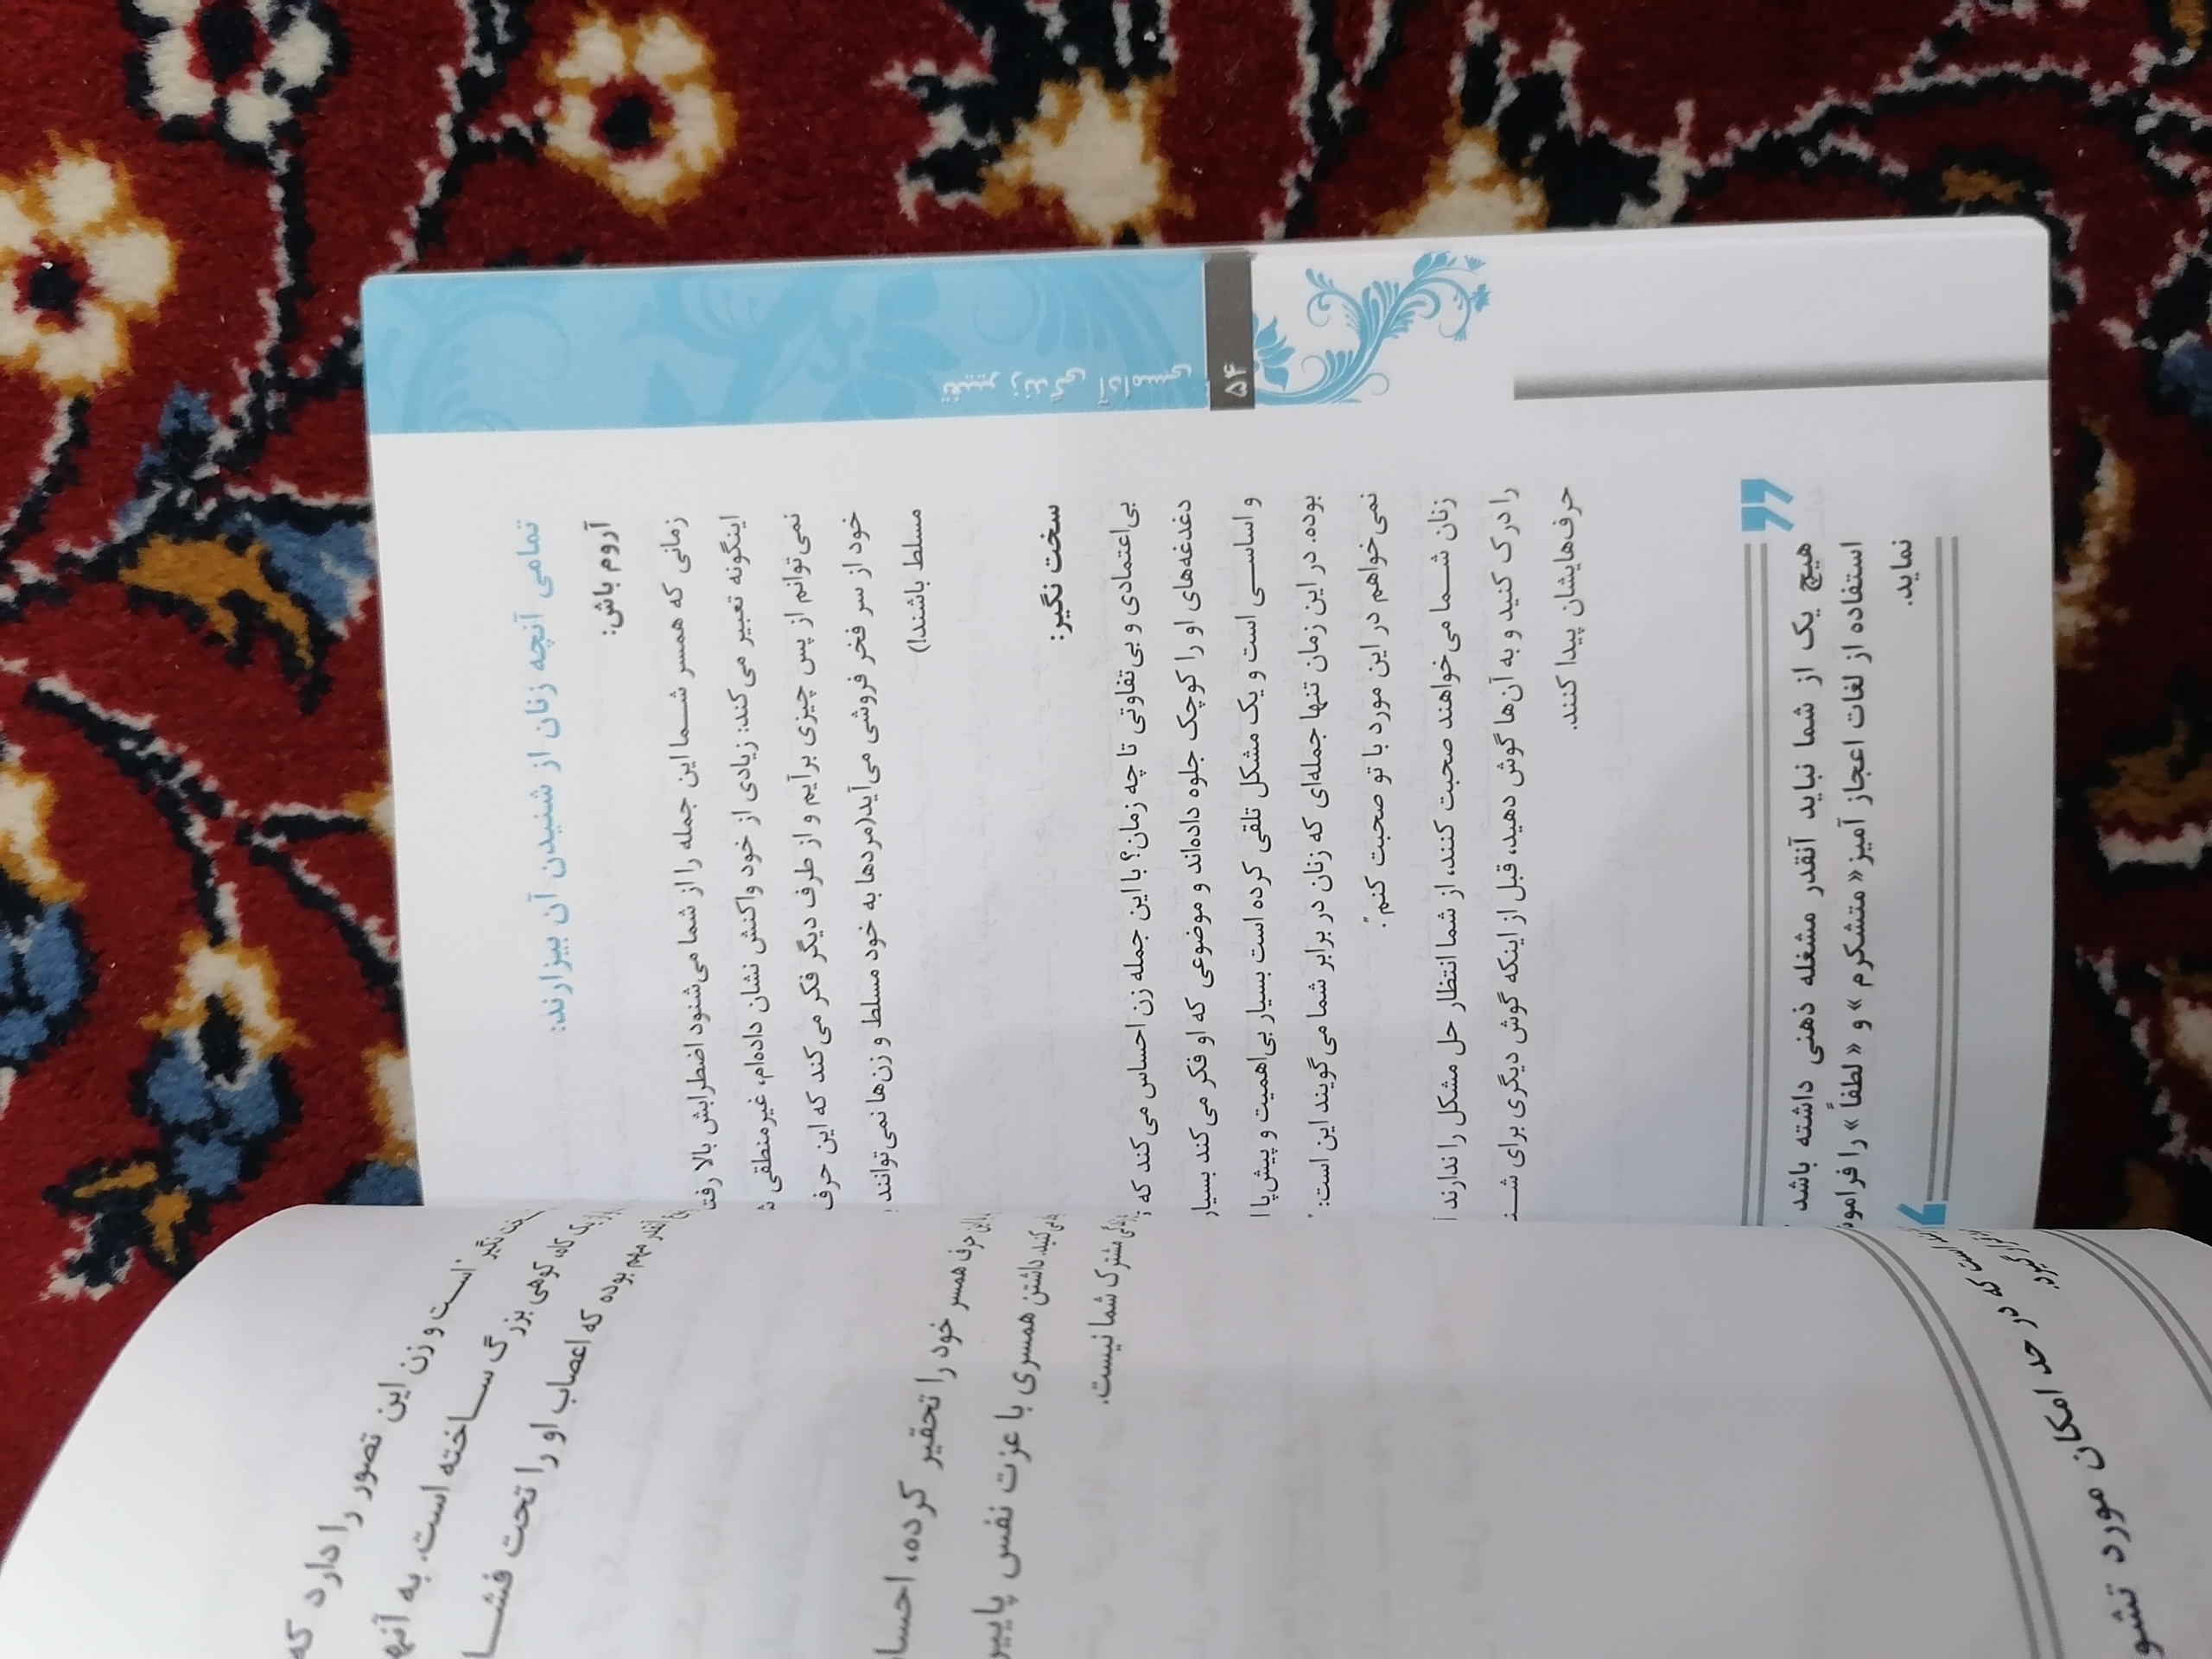 تغییر زندگی آدامسی
۵۴
تمامی آنچه زنان از شنیدن آن بیزارند:
آروم باش:
زمانی که همسر شما این جمله را از شما می‌شنود اضطرابش بالا
اینگونه تعبیر می‌کند: زیادی از خود واکنش نشان داده‌ام، غیرمنطقی
نمی‌توانم از پس چیزی برآیم و از طرف دیگر فکر می‌کند که این حرف
خود از سر فخر فروشی می‌آید(مردها به خود مسلط و زن‌ها نمی‌توانند
مسلط باشند!)
سخت نگیر:
بی‌اعتمادی و بی‌تفاوتی تا چه زمان؟ با این جمله زن احساس می‌کند که
دغدغه‌های او را کوچک جلوه داده‌اند و موضوعی که او فکر می‌کند
و اساسی است و یک مشکل تلقی کرده است بسیار بی‌اهمیت و پیش پا
بوده. در این زمان تنها جمله‌ای که زنان در برابر شما می‌گویند این است: "
نمی‌خواهم در این مورد با تو صحبت کنم".
زنان شما می‌خواهند صحبت کنند، از شما انتظار حل مشکل را ندارند
را درک کنید و به آن‌ها گوش دهید، قبل از اینکه گوش دیگری برای
حرف‌هایشان پیدا کنند.
هیچ یک از شما نباید آنقدر مشغله ذهنی داشته باشد
استفاده از لغات اعجاز آمیز « متشکرم » و «لطفاً » را
نماید.
است و زن این تصور را دارد که
کوهی بزرگ ساخته است. به
مهم بوده که اعصاب او را تحت
حرف همسر خود را تحقیر کرده،
داشتن همسری با عزت نفس
مشترک شما نیست.
است که در حد امکان مورد